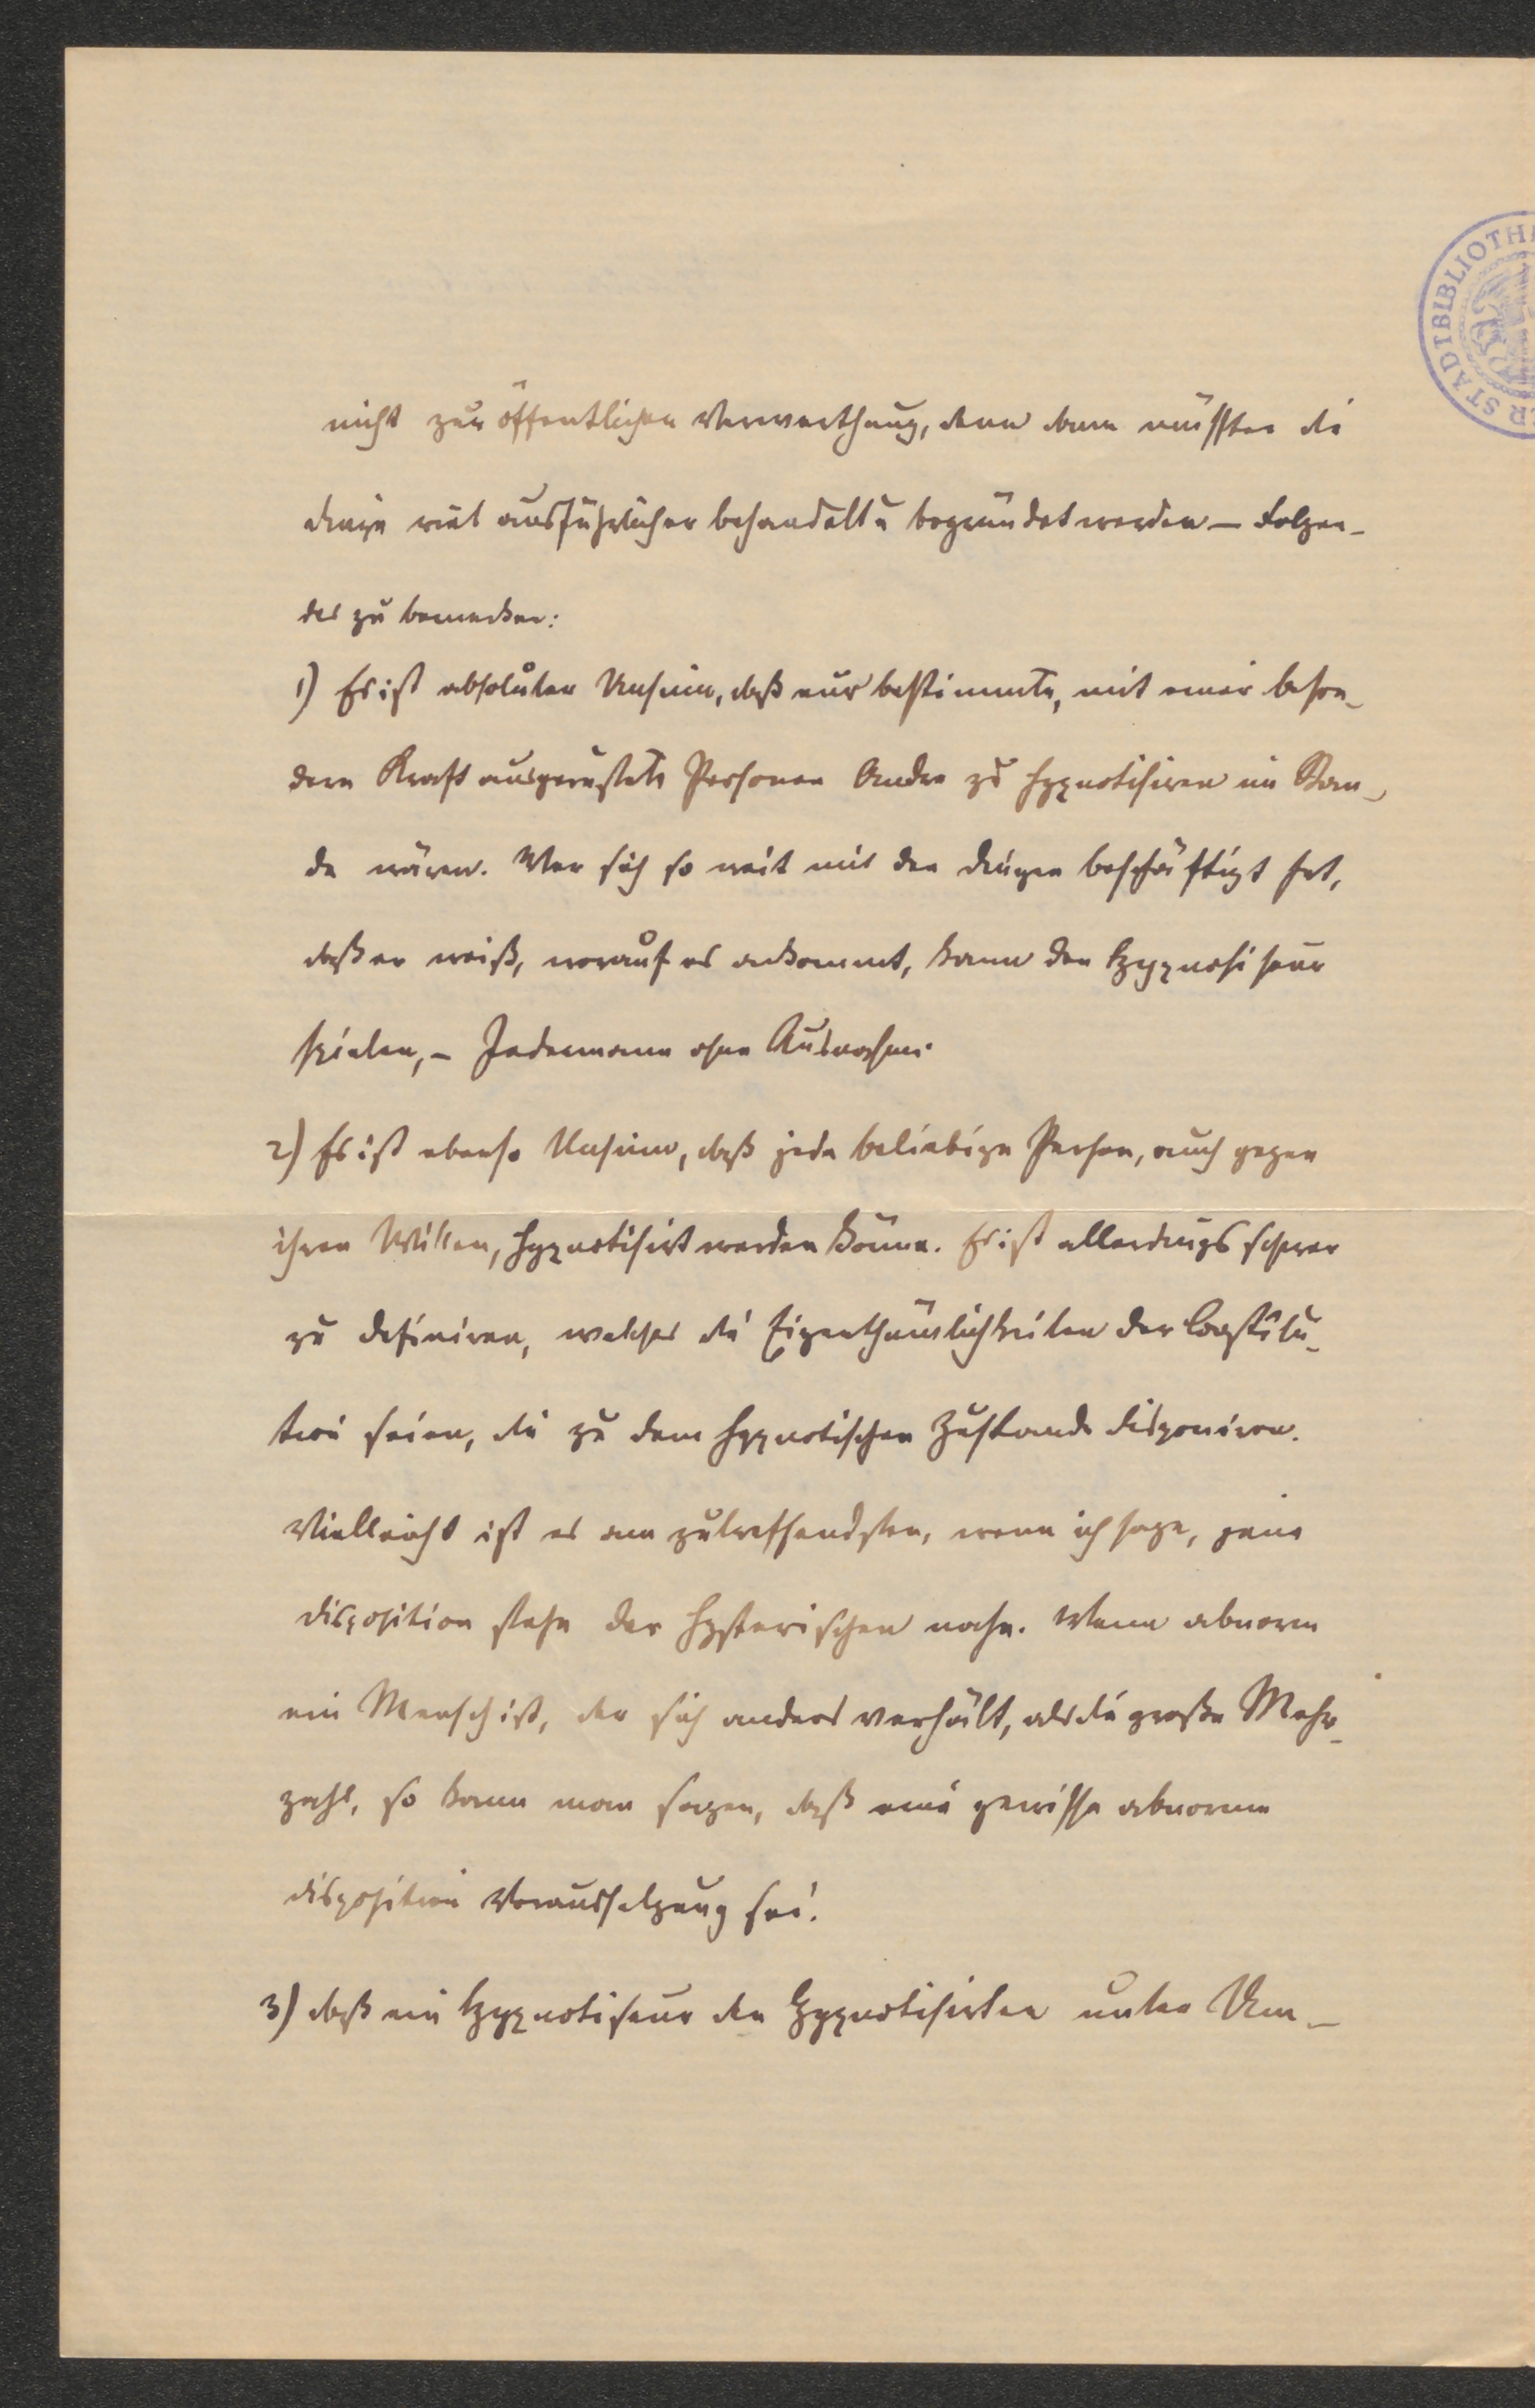 nicht zur öffentlichen Verwerthung, denn dann müssten die
Dinge viel ausführlicher behandelt u begründet werden – Folgen-
des zu bemerken:
1) Es ist absoluter Unsinn, daß nur bestimmte, mit einer beson-
dern Kraft ausgerüstete Personen Andre zu hypnotisiren im Stan-
de wären. Wer sich so weit mit den Dingen beschäftigt hat,
daß er weiß, worauf es ankommt, kann den Hypnotiseur
spielen, – Jedermann ohne Ausnahme.
2) Es ist ebenso Unsinn, daß jede beliebige Person, auch gegen
ihren Willen, hypnotisirt werden könne. Es ist allerdings schwer
zu definiren, welches die Eigenthümlichkeiten der Constitu-
tion seien, die zu dem hypnotischen Zustande disponiren.
Vielleicht ist es am zutreffendsten, wenn ich sage, jene
Disposition stehe der hysterischen nahe. Wenn abnorm
ein Mensch ist, der sich anders verhält, als die große Mehr-
zahl, so kann man sagen, daß eine gewisse abnorme
Disposition Voraussetzung sei.
3) Daß ein Hypnotiseur den Hypnotisirten unter Um-
STADTBIBLIOTHE